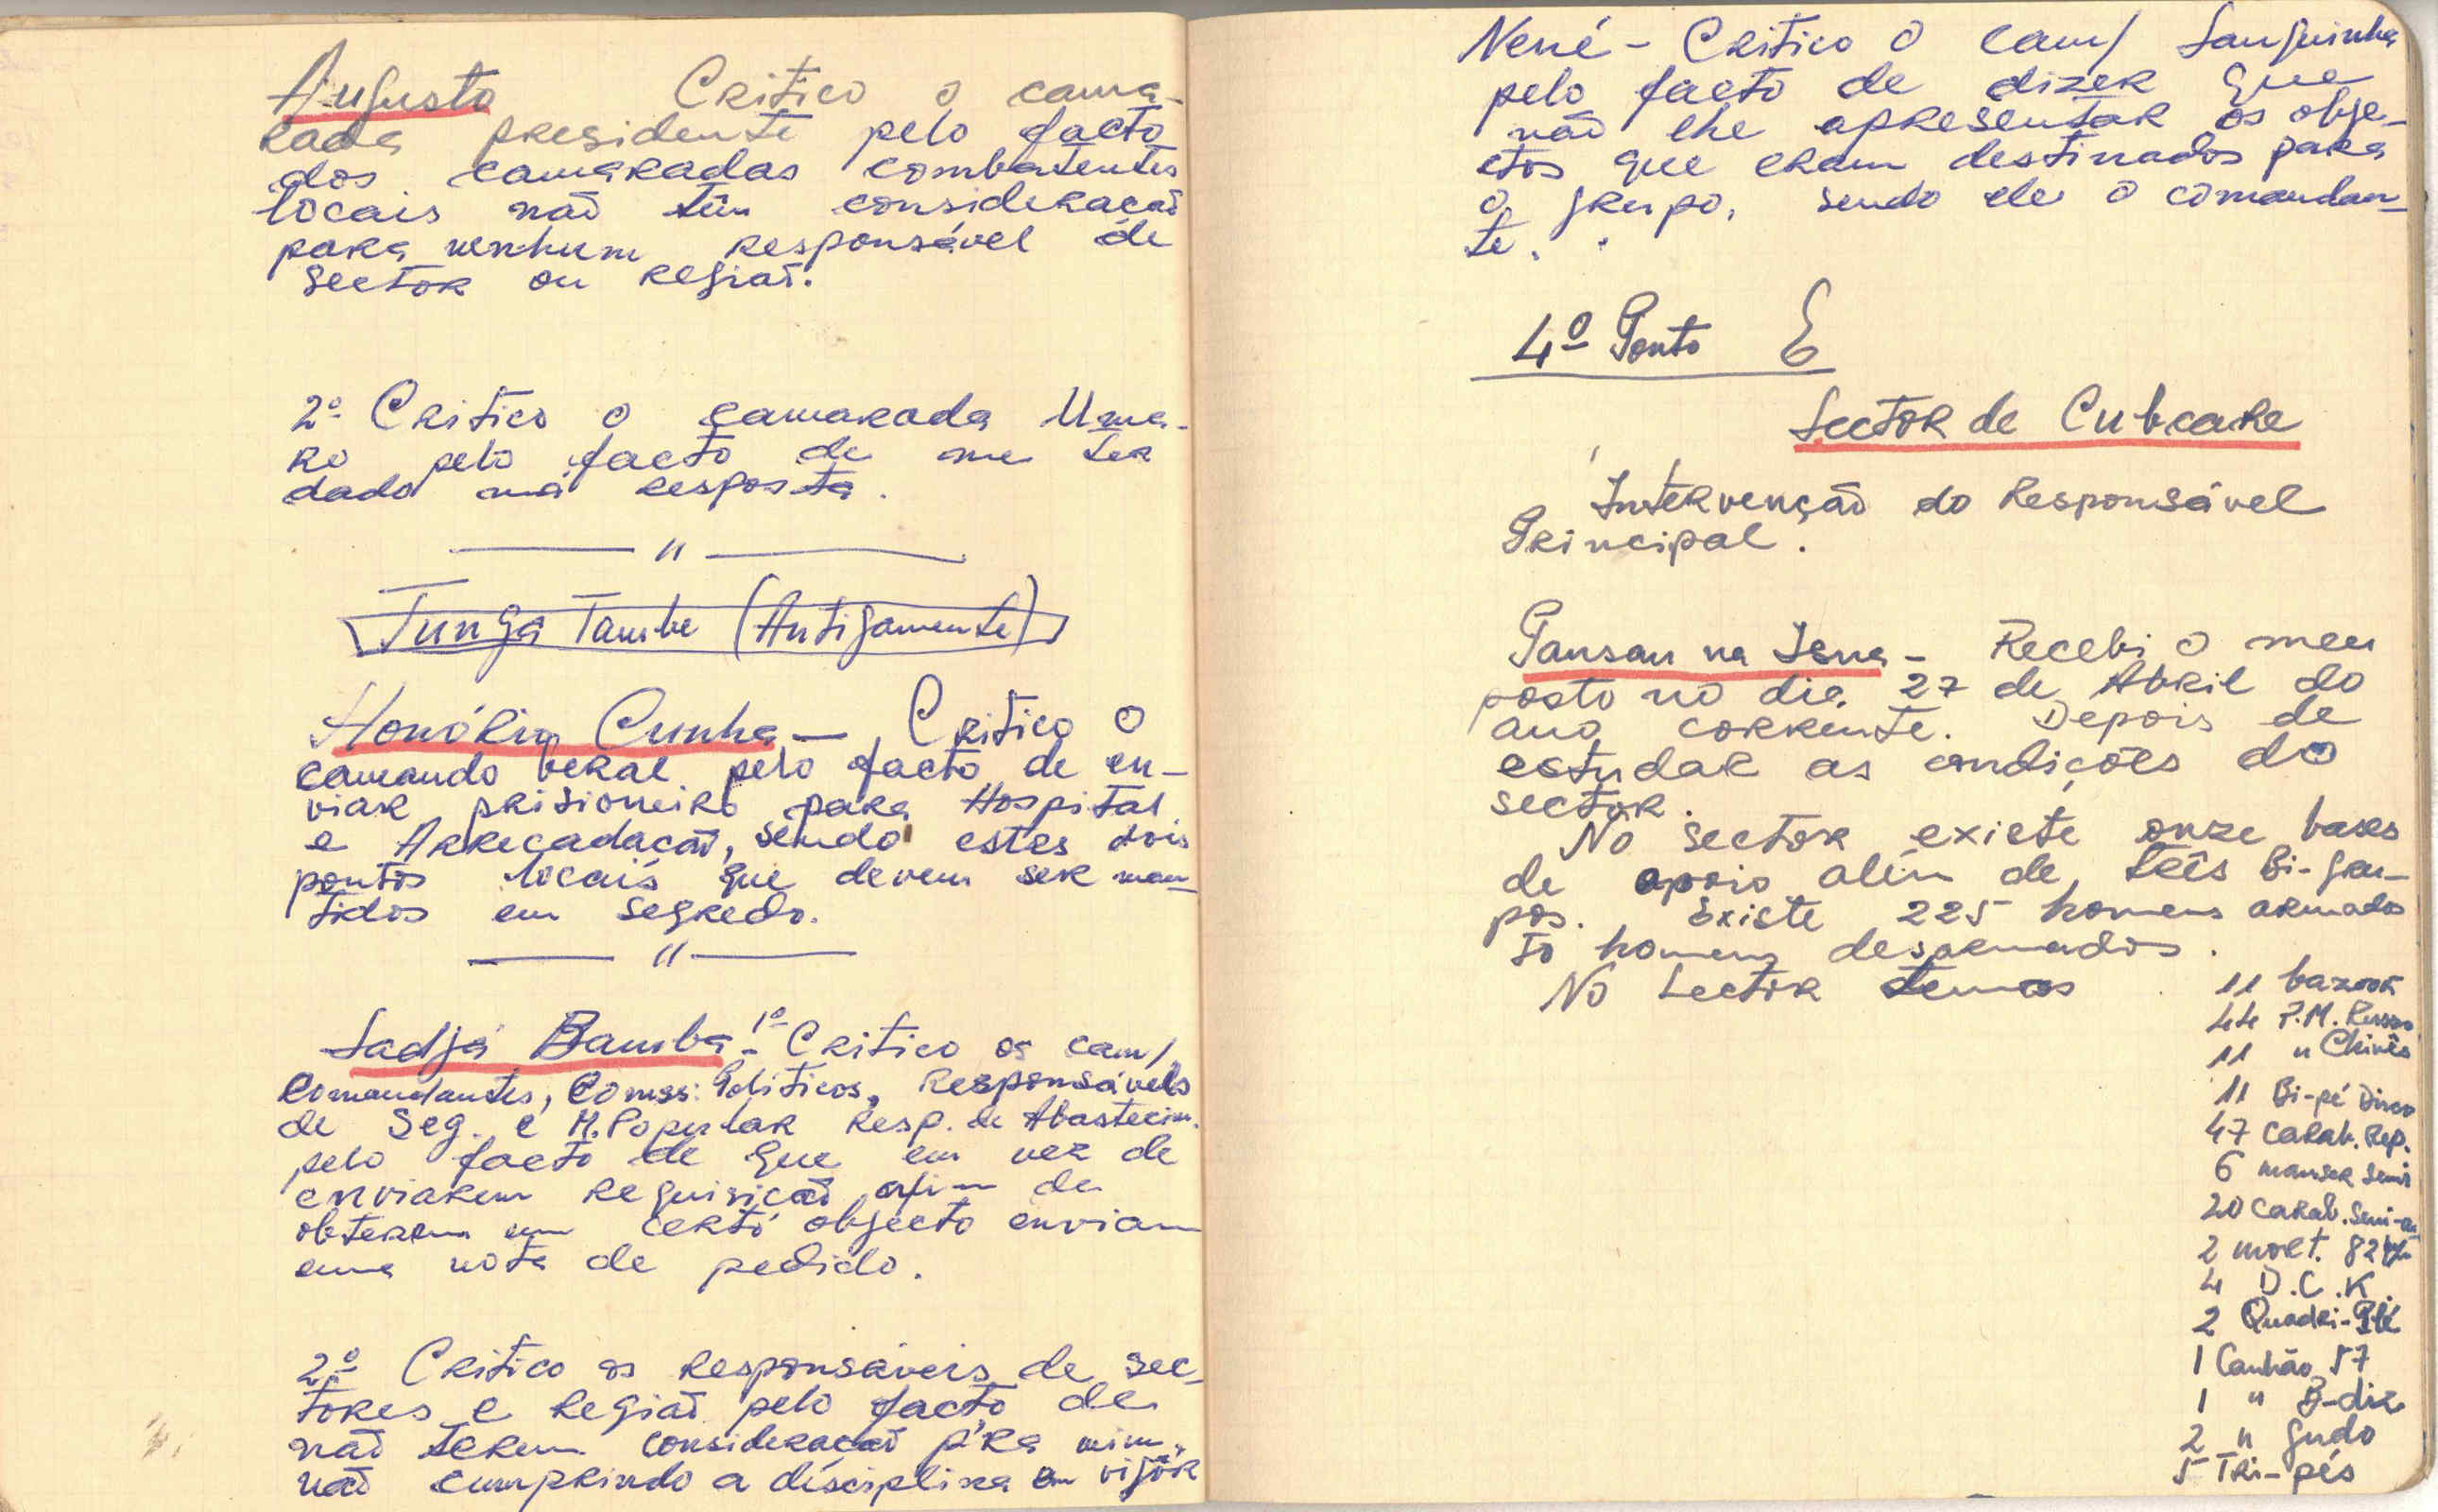 Augusto Critico o cama-
rada presidente pelo facto
dos camaradas combatentes
locais não têm consideração
para nenhum responsável de
sector ou região.
2º Critico o camarada Uma-
ro pelo facto de me ter
dado má resposta.
"
Tunga Tambe (Antigamente)
Honório Cunha - Critico o
comando geral pelo facto de en-
viar prisioneiro para Hospital
e Arrecadação, sendo estes dois
pontos locais que devem ser man-
tidos em segredo.
"
Sadjá Bamba - 1º Critico os cam/
Comandantes, Comss. Políticos, Responsáveis
de Seg. e M. Popular Resp. de Abastecim.
pelo facto de que em vez de
enviarem requisição afim de
obterem um certo objecto enviam
uma nota de pedido.
2º Critico os responsáveis de sec-
tores e Região pelo facto de
não terem consideração p'ra mim,
não cumprindo a disciplina em vigôr
Nené - Critico o cam/ Sanguinha
pelo facto de dizer que
não lhe apresentar os obje-
ctos que eram destinados para
o grupo, sendo ele o comandan-
te.
4º Ponto E
Sector de Cubcare
Intervenção do Responsável
Principal.
Pansau na Isna - Recebi o meu
posto no dia 27 de Abril do
ano corrente. Depois de
estudar as condições do
sector.
No sector existe onze bases
de apoio além de três Bi-gru-
pos. Existe 225 homens armados
homens desarmados.
No Sector temos
11 bazook
44 P.M. Russo
11 " Chinês
11 Bi-pé Disco
47 Carab. Rep.
6 mauser semi
20 Carab. Semi-au
2 mort. 82
4 D.C.K.
2 Quadri-Pé
1 Canhão 57
1 " B-diz
2 " gudo
5 Tri-pés